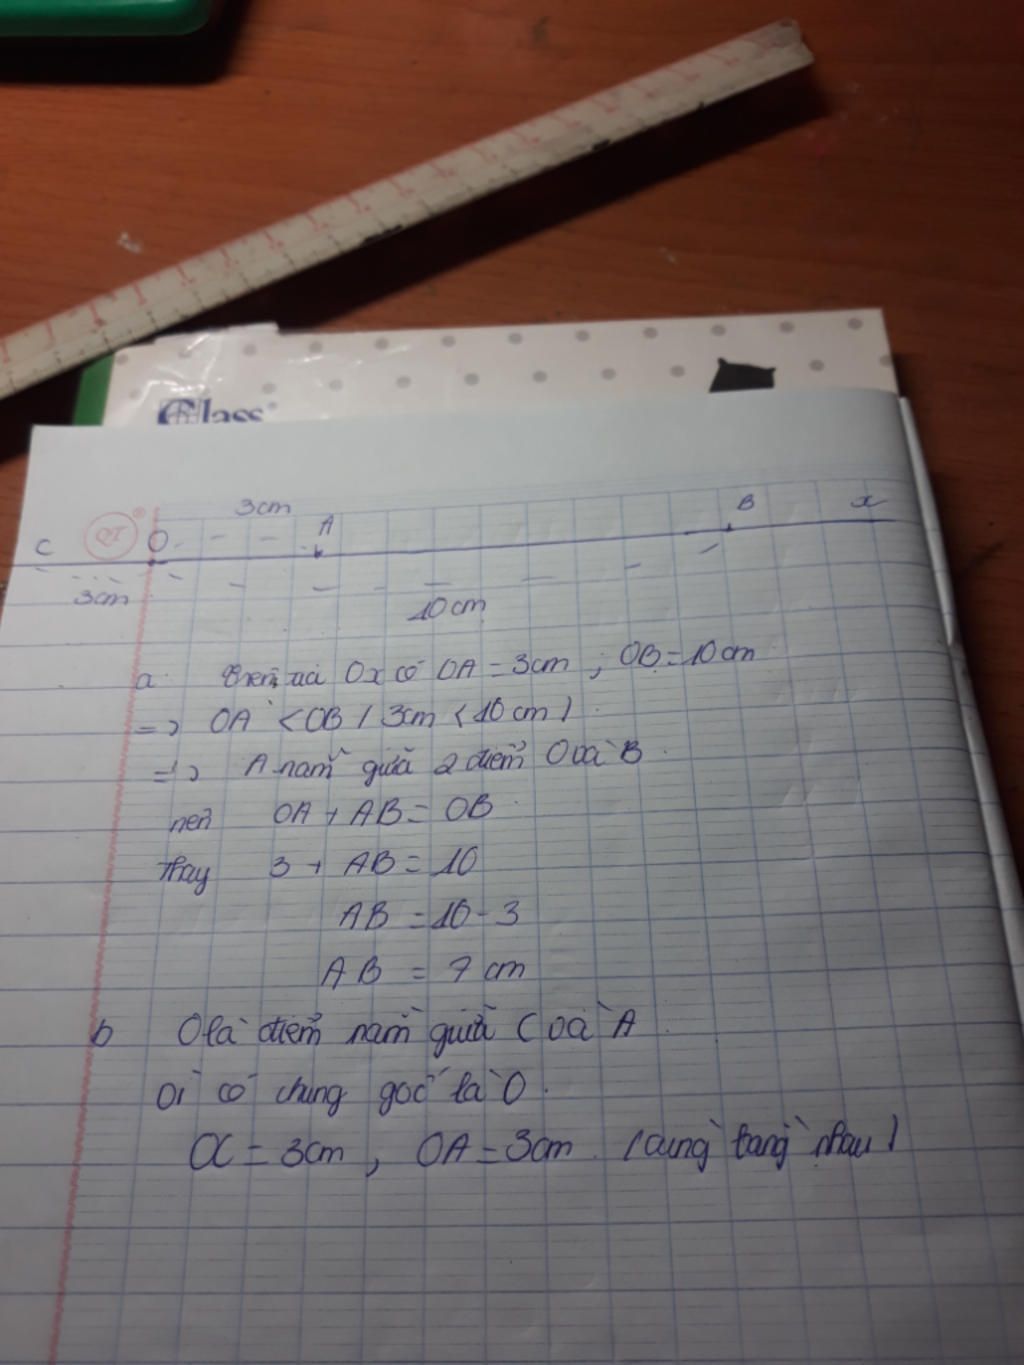 Class
3cm
C O A B x
3cm
10cm
a trên tia Ox có OA = 3cm ; OB = 10cm
=> OA < OB ( 3cm < 10cm )
=> A nằm giữa 2 điểm O và B.
nên OA + AB = OB
Thay 3 + AB = 10
AB = 10 - 3
AB = 7 cm
b O là điểm nằm giữa C và A.
Vì có chung gốc là O.
OC = 3cm , OA = 3cm. (cùng bằng nhau)